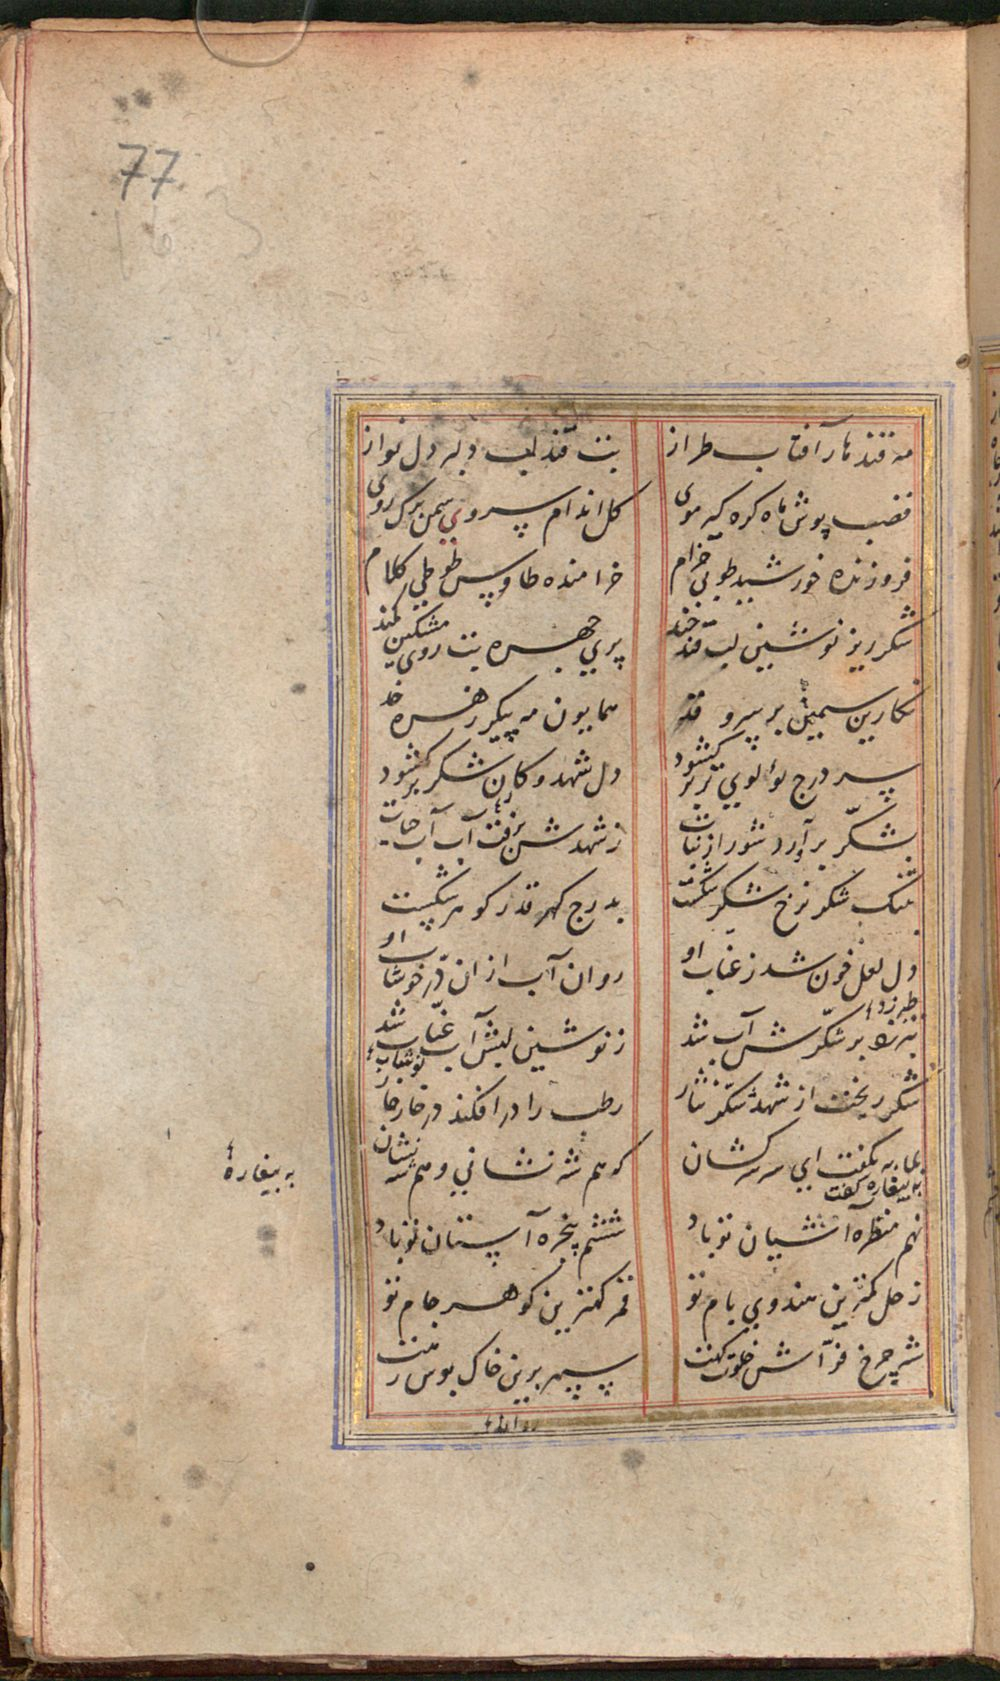 77
مه قندهار آفتاب طراز
بت قند لب دلبر دل نواز
قضب پوش ماه کره کیر موی
کل اندام سروی سمن برک روی
فروزنده خورشید طوبی خرام
خرامنده طاوس طوطی کلام
شکرریز نوشین لب قند خند
پری چهره بت روی مشکین کمند
نکارین سیمین بر سرو قد
همایون مه پیکر زهره خد
سر درج لؤلوی تر بر کشود
دل شهد و کان شکر بر کشود
بشکّر برآورد شور از نبات
ز شهدش برفت آب آب حیات
بتنک شکر نرخ شکر شکست
بدرج کهر قدر کوهر شکست
دل لعل خون شد ز عناب او
روان آب ازان درّ خوشاب او
طبرزد
بر شکّرش آب شد
ز نوشین لبش آب عنّاب شد
نوشاب
شکر ریخت از شهد شکّر نثار
رطب را در افکند در خار خار
بکفت ای سر سرکشان
به بیغاره کفت
که هم شه نشانی و هم شه نشان
به بیغاره
نهم منظره آشیان تو باد
ششم پنجره آستان تو باد
زحل کمترین هندوی بام تو
قمر کمترین کوهر جام تو
شه چرخ فرّاش خلوت کهت
سپهر برین خاک بوس رهت